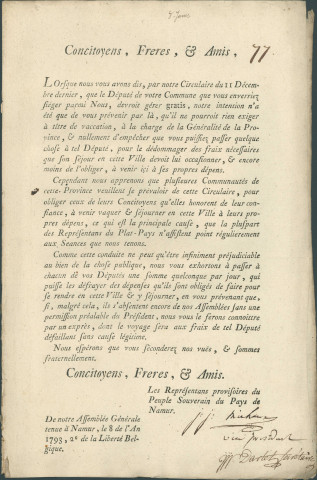 Concitoyens, Freres, & Amis,
77
LOrsque nous vous avons dit, par notre Circulaire du 11 Décem-
bre dernier, que le Député de votre Commune que vous enverriez
siéger parmi Nous, devroit gérer gratis, notre intention n'a
été que de vous prévenir par là, qu'il ne pourroit rien exiger
à titre de vaccation, à la charge de la Généralité de la Pro-
vince, & nullement d'empêcher que vous puissiez passer quelque
chose à tel Député, pour le dédommager des fraix nécessaires
que son séjour en cette Ville devoit lui occasionner, & encore
moins de l'obliger, à venir ici à ses propres dépens.
Cependant nous apprenons que plusieures Communautés de
cette Province veuillent se prévaloir de cette Circulaire, pour
obliger ceux de leurs Concitoyens qu'elles honorent de leur con-
fiance, à venir vaquer & séjourner en cette Ville à leurs pro-
pres dépens, ce qui est la principale cause, que la pluspart
des Représentans du Plat-Pays n'assistent point régulierement
aux Seances que nous tenons.
Comme cette conduite ne peut qu'être infiniment préjudiciable
au bien de la chose publique, nous vous exhortons à passer à
chacun de vos Députés une somme quelconque par jour, qui
puisse les défrayer des dépenses qu'ils sont obligés de faire pour
se rendre en cette Ville & y séjourner, en vous prévenant que,
si, malgré cela, ils s'absentent encore de nos Assemblées sans une
permission préalable du Président, nous vous le ferons connoître
par un exprès, dont le voyage sera aux fraix de tel Député
défaillant sans cause légitime.
Nous espérons que vous seconderez nos vues, & sommes
fraternellement.
Concitoyens, Freres, & Amis.
Les Représentans provisoires du
Peuple Souverain du Pays de
Namur.
De notre Assemblée Générale
tenue à Namur, le 8 de l'An
1793, 2e de la Liberté Bel-
gique.
vice president